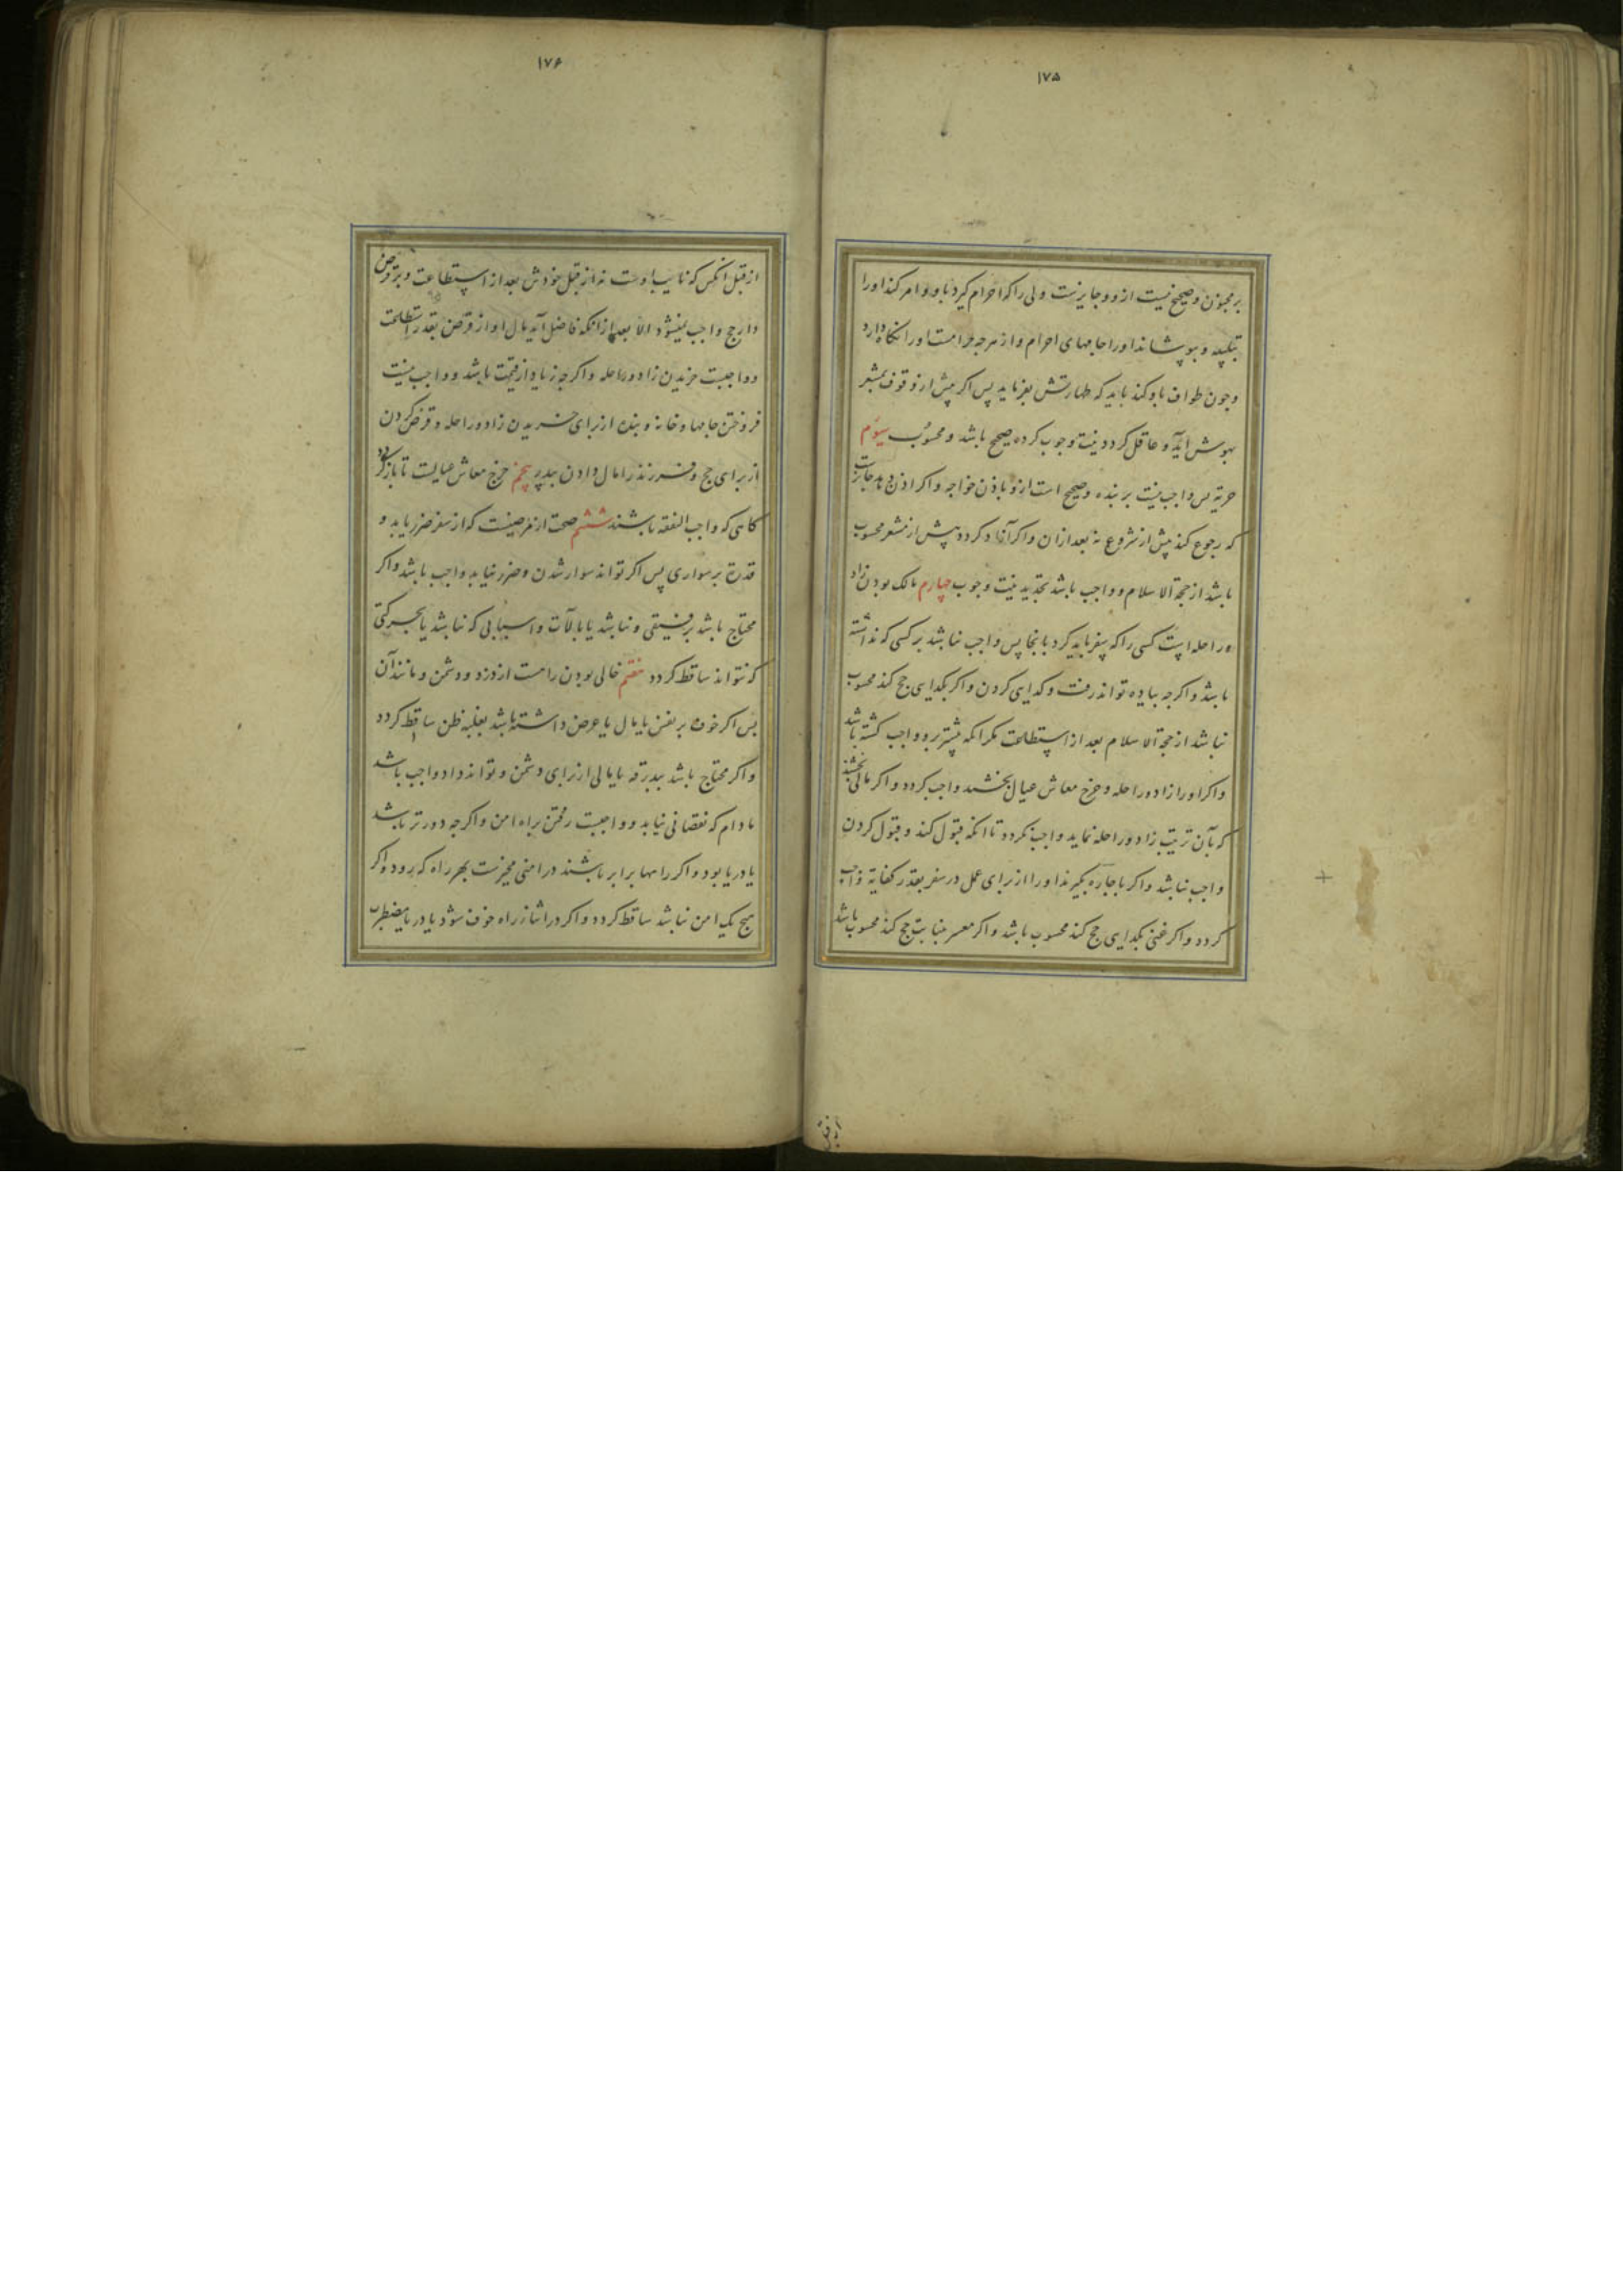 ۱۷۵
بر مجنون و صحیح نیست ازو و جایزست ولی را که احرام گیرد باو و امر کند او را
بتلبیه و بپوشاند او را جامهای احرام و از هر چه حرامست او را نگاه دارد
و چون طواف باو کند باید که طهارتش بفرماید پس اگر پیش از وقوف بمشعر
بهوش آید و عاقل گردد نیت وجوب کرده صحیح باشد و محسوب سیوم
حریة پس واجب نیست بر بنده و صحیح است ازو باذن خواجه و اگر اذن دهد جایزست
که رجوع کند پیش از شروع نه بعد ازان و اگر آزاد گردد پیش از مشعر محسوب
باشد از حجة الاسلام و واجب باشد تجدید نیت وجوب چهارم مالک بودن زاد
و راحله است کسی را که سفر باید کرد بانجا پس واجب نباشد بر کسی که نداشته
باشد و اگر چه پیاده تواند رفت و گدایی کردن و اگر بگدایی حج کند محسوب
نباشد از حجة الاسلام بعد از استطاعت مگر آنکه پیشتر برو واجب گشته باشد
و اگر او را زاد و راحله و خرج معاش عیال بخشند واجب گردد و اگر مالی بخشند
که بآن ترتیب زاد و راحله نماید واجب نگردد تا آنکه قبول کند و قبول کردن
واجب نباشد و اگر باجاره بگیرند او را از برای عمل در سفر بقدر کفایة واجب
گردد و اگر غنی بگدایی حج کند محسوب باشد و اگر معسر بنیابت حج کند محسوب باشد
از قبل
۱۷۶
از قبل آنکس که نایب اوست نه از قبل خودش بعد از استطاعت و بر قرض
دار حج واجب نمیشود الا بعد از آنکه فاضل آید مال او از قرض بقدر استطاعت
و واجبست خریدن زاد و راحله و اگر چه زیاد از قیمت باشد و واجب نیست
فروختن جامها و خانه و بنده از برای خریدن زاد و راحله و قرض کردن
از برای حج و فرزند را مال دادن بپدر پنجم خرج معاش عیالست تا باز گردد
کسانی که واجب النفقه باشند ششم صحت از مرضیست که از سفر ضرر یابد و
قدرت بر سواری پس اگر تواند سوار شدن و ضرر نیابد واجب باشد و اگر
محتاج باشد برفیقی و نباشد یا بآلات و اسبابی که نباشد یا بحرکتی
که نتواند ساقط گردد هفتم خالی بودن راهست از دزد و دشمن و مانند آن
پس اگر خوف بر نفس یا مال یا عرض داشته باشد بغلبه ظن ساقط گردد
و اگر محتاج باشد ببدرقه یا مالی از برای دشمن و تواند داد واجب باشد
مادام که نقصانی نیابد و واجبست رفتن براه امن و اگر چه دورتر باشد
یا دریا بود و اگر راهها برابر باشند در امنی مخیرست بهر راه که برود و اگر
هیچ یک امن نباشد ساقط گردد و اگر در اثنا از راه خوف شود یا دریا مضطرب